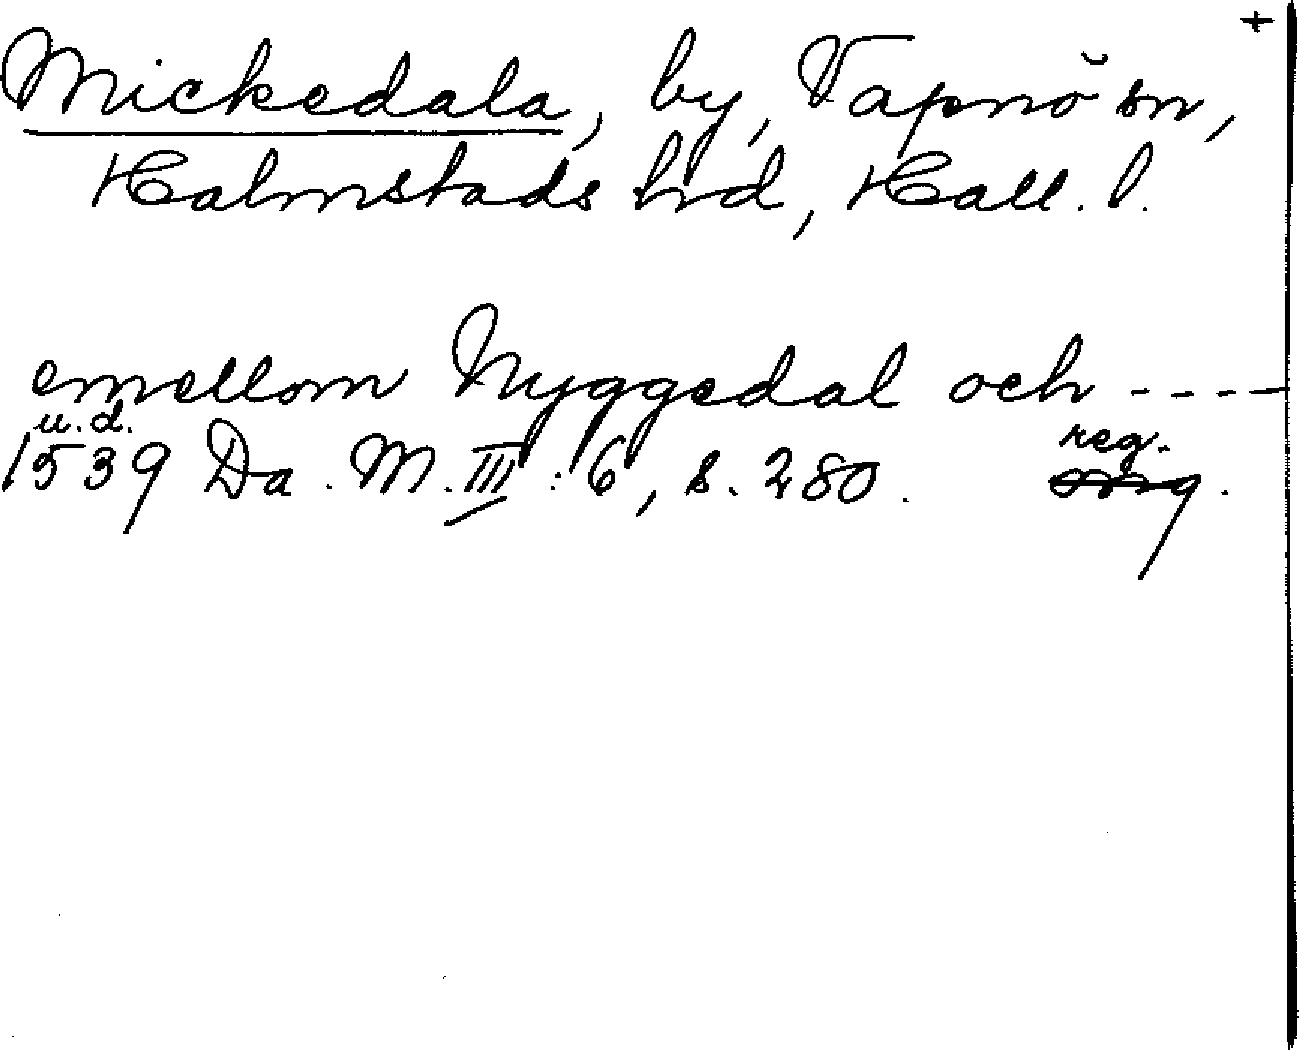 +
Mickedala, by, Vapnö sn,
Halmstads hrd, Hall. l.
emellom Nyggedal och ----
u.d. reg.
1539 Da. M. III : 6, s. 280.